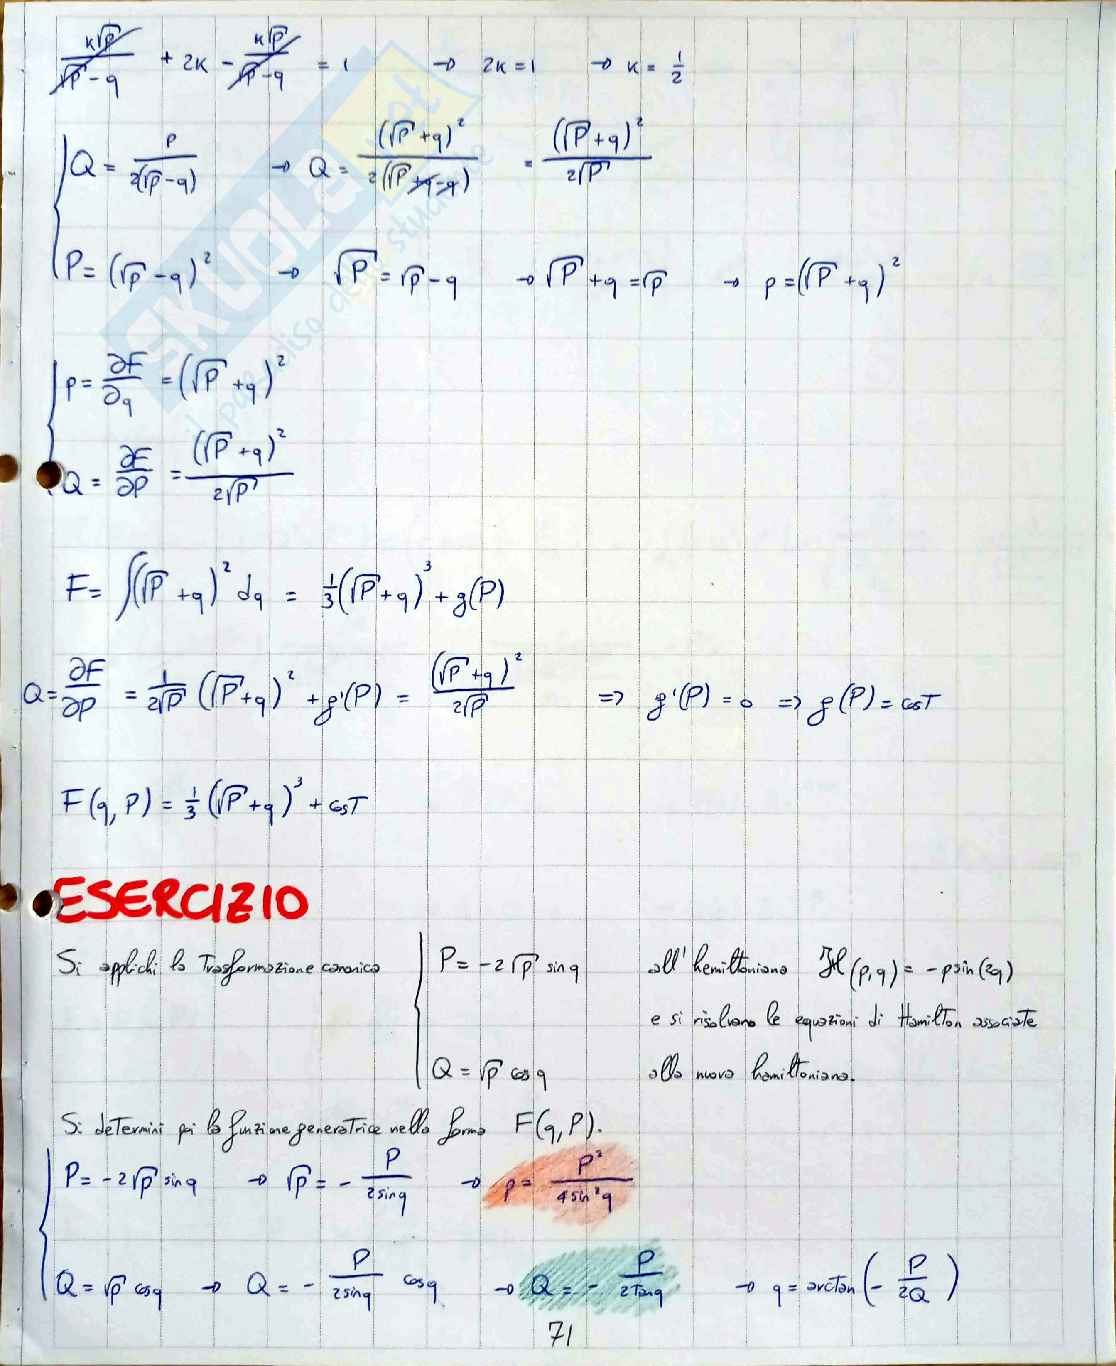 k√p/(√p-q) + 2k - k√p/(√p-q) = 1 → 2k=1 → k= 1/2
Q = p/(2(√p-q)) → Q = (√P+q)²/(2(√P+q-q)) = (√P+q)²/(2√P)
P = (√p-q)² → √P = √p-q → √P+q = √p → p = (√P+q)²
p = ∂F/∂q = (√P+q)²
Q = ∂F/∂P = (√P+q)²/(2√P)
F = ∫(√P+q)² dq = 1/3(√P+q)³ + g(P)
Q = ∂F/∂P = 1/(2√P) (√P+q)² + g'(P) = (√P+q)²/(2√P) ⇒ g'(P) = 0 ⇒ g(P) = cosT
F(q,P) = 1/3(√P+q)³ + cosT
ESERCIZIO
Si applichi la Trasformazione canonica P = -2√p sinq all'hemiltoniana ℋ(p,q) = -psin(2q)
e si risolvano le equazioni di Hamilton associate
Q = √p cosq alla nuova hamiltoniana.
Si determini poi la funzione generatrice nella forma F(q,P).
P = -2√p sinq → √p = - P/(2sinq) → p = P²/(4sin²q)
Q = √p cosq → Q = - P/(2sinq) cosq → Q = - P/(2Tanq) → q = arctan(- P/(2Q))
71
SKUOLA.net